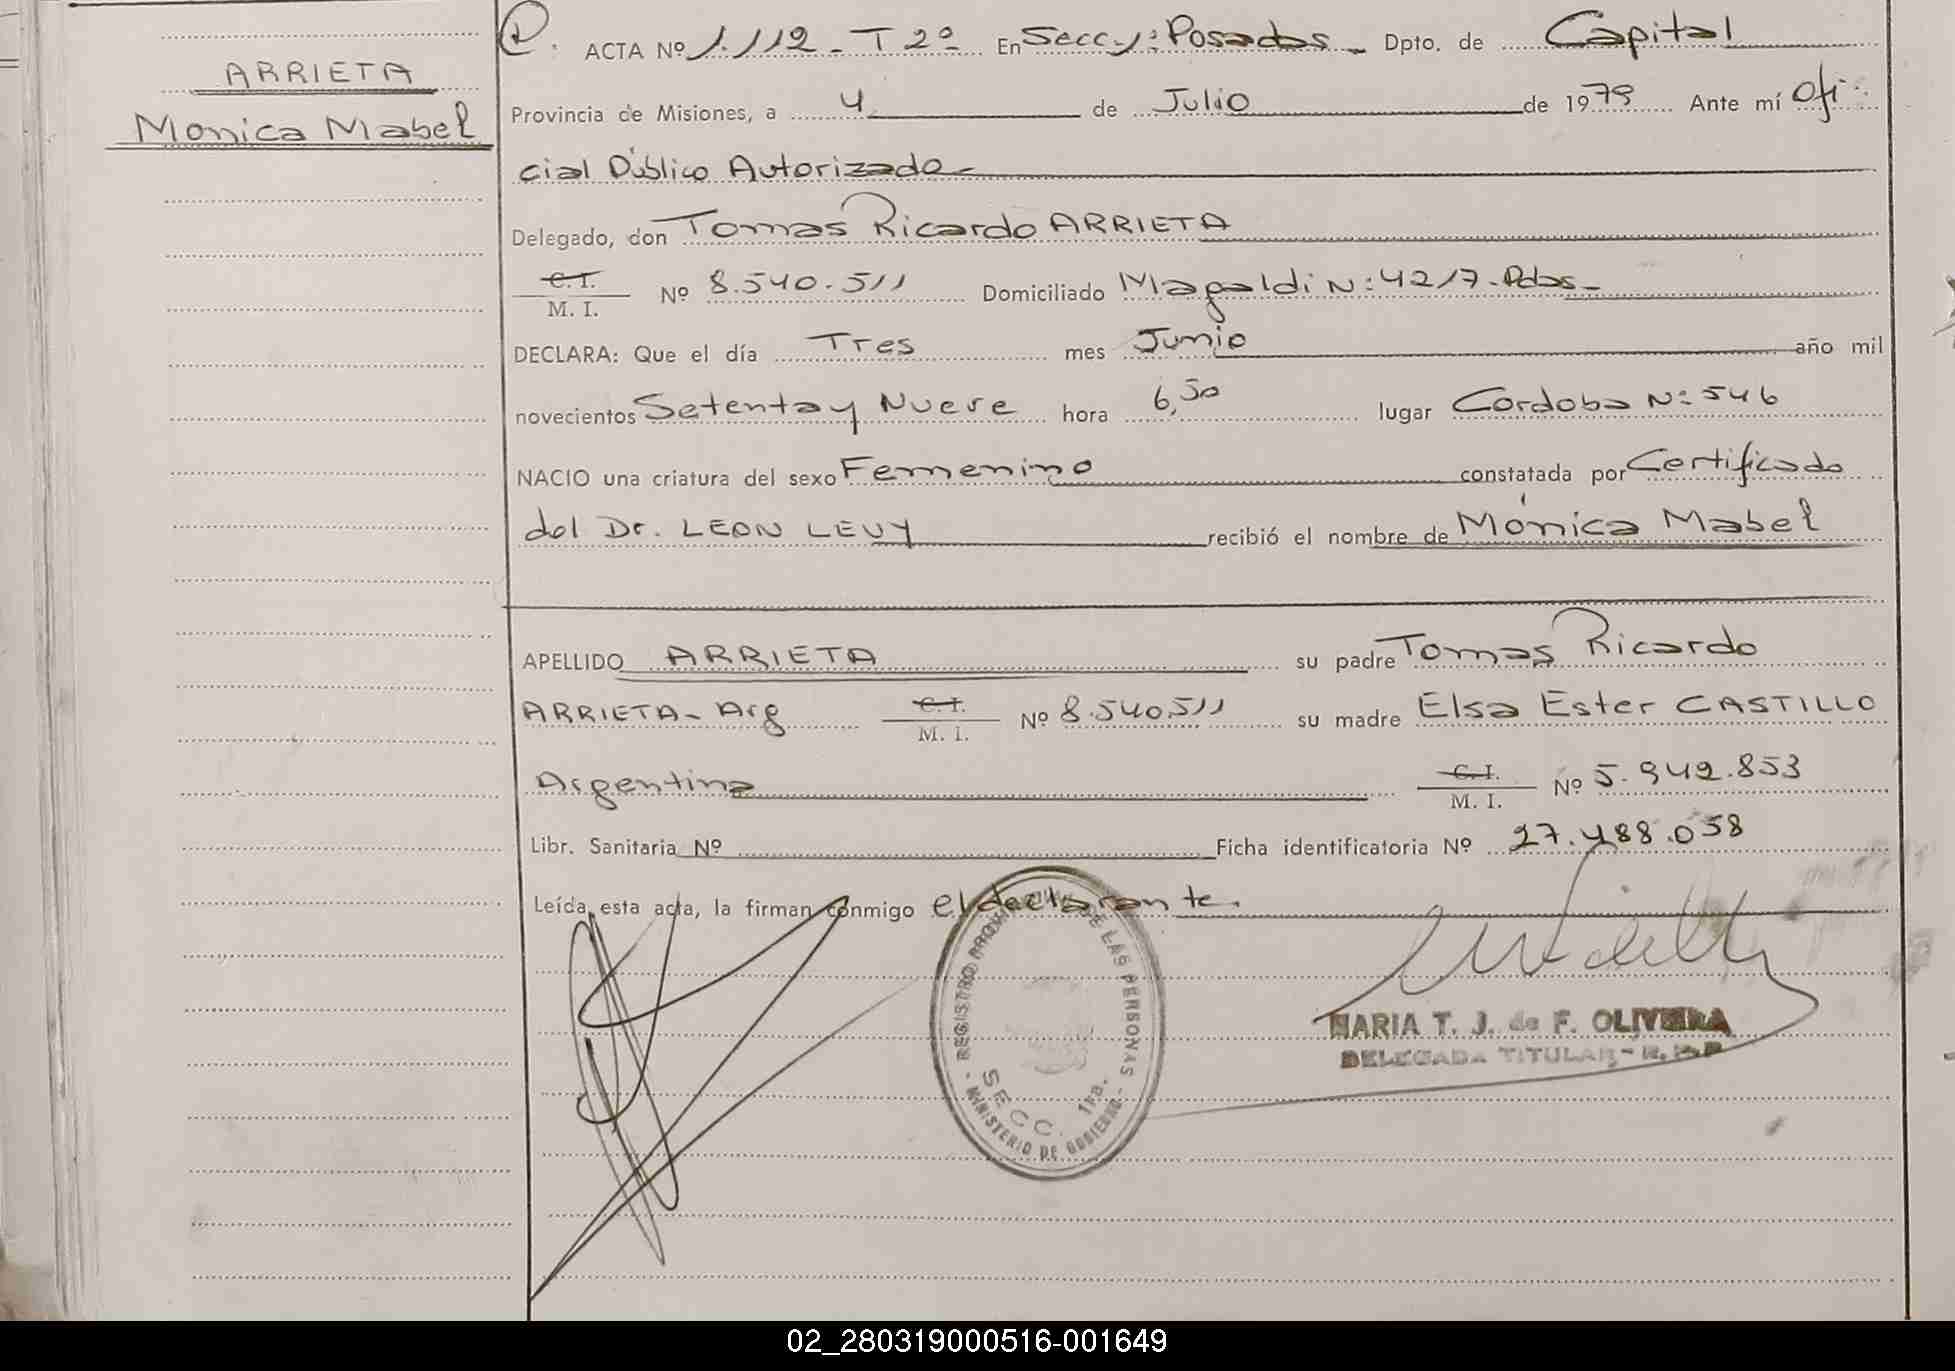 ARRIETA
Monica Mabel
ACTA Nº 1.112 - T 2º En Secc y: Posadas Dpto. de Capital
Provincia de Misiones, a 4 de Julio de 1979 Ante mí Ofi-
cial Público Autorizado
Delegado, don Tomas Ricardo ARRIETA
C. I.
M. I. Nº 8.540.511 Domiciliado Magaldi N: 4217. Pdas
DECLARA: Que el día Tres mes Junio año mil
novecientos Setenta y Nueve hora 6,50 lugar Cordoba N: 546
NACIO una criatura del sexo Femenino constatada por Certificado
del Dr. LEON LEVY recibió el nombre de Mónica Mabel
APELLIDO ARRIETA su padre Tomas Ricardo
ARRIETA - Arg C. I. M. I. Nº 8.540.511 su madre Elsa Ester CASTILLO
Argentina C. I. M. I. Nº 5.942.853
Libr. Sanitaria Nº Ficha identificatoria Nº 27.488.058
Leída esta acta, la firman conmigo el declarante.
REGISTRO DE LAS PERSONAS
SECC. 1RA.
- MINISTERIO DE GOBIERNO -
MARIA T. J. de F. OLIVEIRA
DELEGADA TITULAR - R. P. P.
02_280319000516-001649